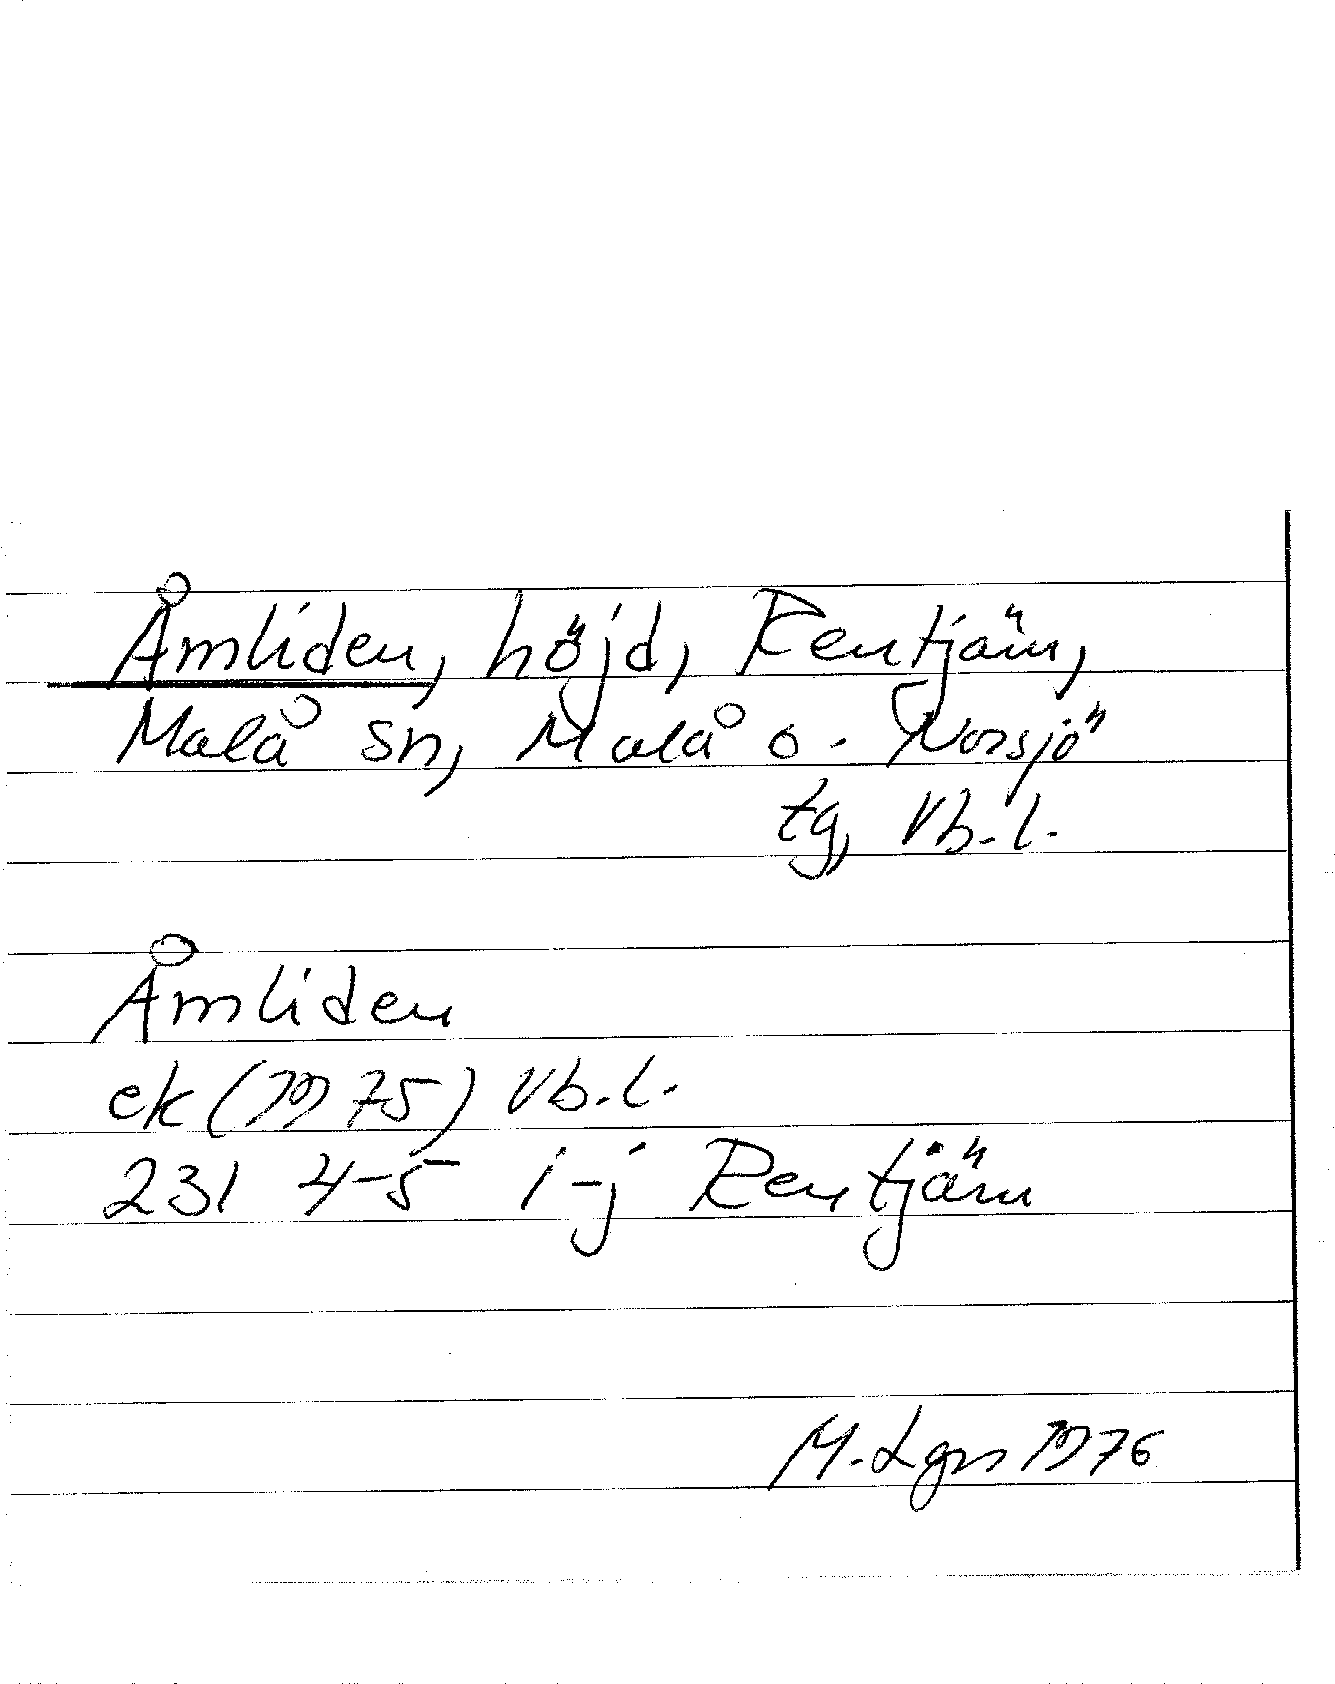 Åmliden, höjd, Rentjärn,
Malå sn, Malå o. Norsjö
tg, Vb.l.
Åmliden
ek (1975) Vb.l.
231 4-5 i-j Rentjärn
M. Lgn 1976